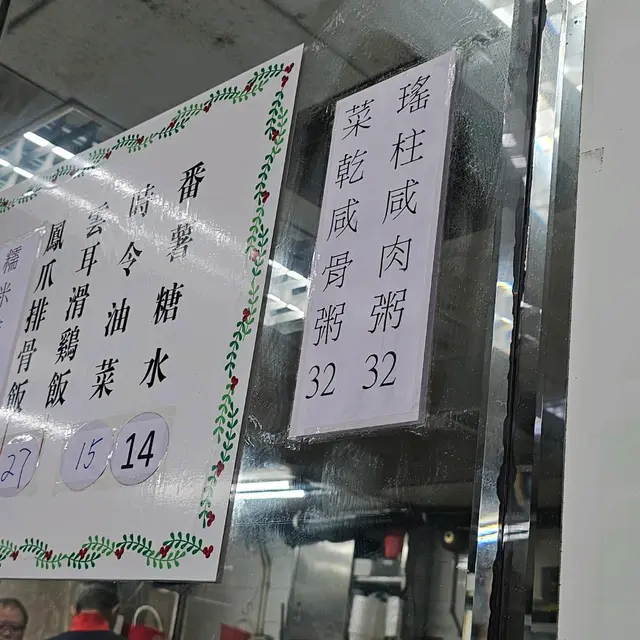 瑤柱咸肉粥 32
菜乾咸骨粥 32
番薯糖水 14
時令油菜 15
雲耳滑鷄飯
鳳爪排骨飯 27
糯米